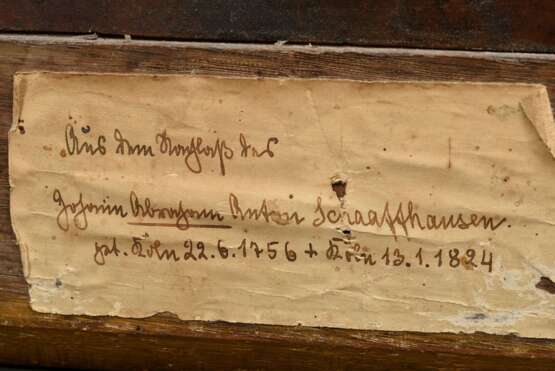 Aus dem Nachlaß des
Johann Abraham Anton Schaaffhausen.
get. Köln 22.6.1756 + Köln 13.1.1824